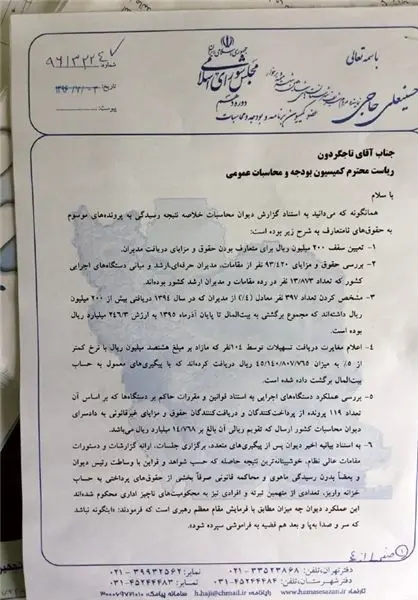 باسمه تعالی
جمهوری اسلامی ایران
مجلس شورای اسلامی
دوره دهم
حسینعلی حاجی
عضو کمیسیون برنامه و بودجه و محاسبات
شماره: ۹۶/۳۲۲۴
تاریخ: ۱۳۹۶/۷/۰۳
پیوست:
جناب آقای تاجگردون
ریاست محترم کمیسیون بودجه و محاسبات عمومی
با سلام
همانگونه که می‌دانید به استناد گزارش دیوان محاسبات خلاصه نتیجه رسیدگی به پرونده‌های موسوم
به حقوق‌های نامتعارف به شرح زیر بوده است:
۱- تعیین سقف ۲۰۰ میلیون ریال برای متعارف بودن حقوق و مزایای دریافت مدیران.
۲- بررسی حقوق و مزایای ۹۳/۴۲۰ نفر از مقامات، مدیران حرفه‌ای، ارشد و میانی دستگاه‌های اجرایی
کشور که تعداد ۱۳/۸۷۳ نفر در رده مقامات و مدیران ارشد کشور بوده‌اند.
۳- مشخص کردن تعداد ۳۹۷ نفر معادل (۴٪) از مدیران که در سال ۱۳۹۴ دریافتی بیش از ۲۰۰ میلیون
ریال داشته‌اند که مجموع برگشتی به بیت‌المال تا پایان آذرماه ۱۳۹۵ به ارزش ۲۴۶/۳ میلیارد ریال
بوده است.
۴- اعلام مغایرت دریافت تسهیلات توسط ۱۰۴نفر که مازاد بر مبلغ هشتصد میلیون ریال با نرخ کمتر
از ۵٪ به میزان ۴۵/۱۴۰/۸۰۷/۷۶۵ ریال دریافت کرده‌اند که با پیگیری‌های معمول به حساب
بیت‌المال برگشت داده شده است.
۵- بررسی عملکرد دستگاه‌های اجرایی به استناد قوانین و مقررات حاکم بر دستگاه‌ها که بر اساس آن
تعداد ۱۱۹ پرونده از پرداخت‌کنندگان و دریافت‌کنندگان حقوق و مزایای غیرقانونی به دادسرای
دیوان محاسبات کشور ارسال که تقویم ریالی آن بالغ بر ۱۴/۷۶۸ میلیارد ریال می‌باشد.
۶- به استناد بیانیه اخیر دیوان پس از پیگیری‌های متعدد، برگزاری جلسات، ارائه گزارشات و دستورات
مقامات عالی نظام، خوشبینانه‌ترین نتیجه حاصله که حسب شواهد و قراین با وساطت رئیس دیوان
و بعضاً بدون رسیدگی ماهوی و محاکمه قانونی صرفاً بخشی از حقوق‌های پرداختی به حساب
خزانه واریز، تعدادی از متهمین تبرئه و افرادی نیز به محکومیت‌های ناچیز اداری محکوم شده‌اند
این عملکرد دیوان چه میزان مطابق با فرمایش مقام معظم رهبری است که فرمودند: «اینگونه نباشد
که سر و صدا به‌پا و بعد هم قضیه به فراموشی سپرده شود».
صفحه ۱ از ۴
دفتر تهران، تلفن: ۳۳۵۲۳۸۶۸-۰۲۱ نمابر: ۳۹۹۳۲۵۶۲-۰۲۱
دفتر شهرستان، تلفن: ۴۵۲۴۴۴۸۴-۰۳۱ نمابر: ۴۵۲۴۴۴۸۳-۰۳۱
تارنما: www.hamasesazan.ir رایانامه: h.haji@chmail.ir سامانه پیامک: ۳۰۰۰۶۹۷۱۰۱۰